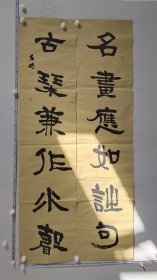 名畫應如詩句
古琴兼作水聲